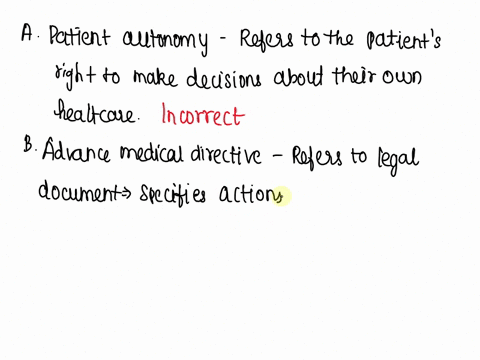 A. Patient autonomy - Refers to the patient's
right to make decisions about their own
healtcase. Incorrect
B. Advance medical directive - Refers to legal
document → specifies actions